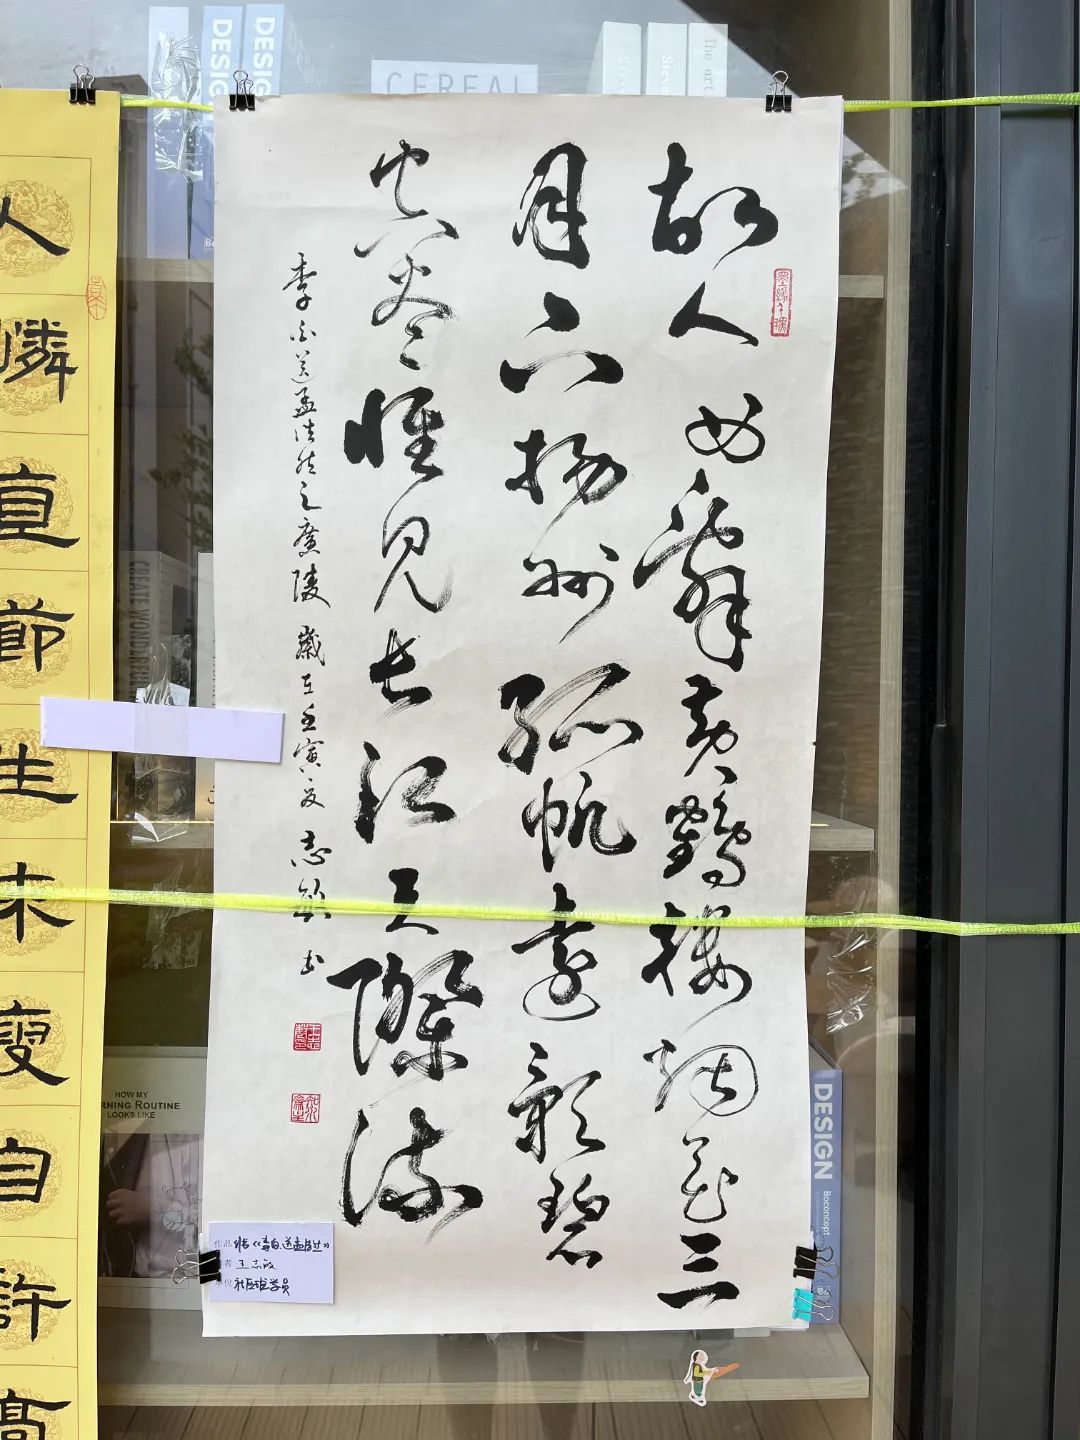 故人西辭黃鶴樓烟花三
月下揚州孤帆遠影碧
空盡惟見長江天際流
李白送孟浩然之廣陵 歲在壬寅夏 志敏书
人憐直節生来瘦自許高
作品 行书《李白送孟浩然》
者 王志敏
单位 社区班学员
DESIGN
DESIGN
CEREAL
Steve
Steve
The art
HOW MY
RNING ROUTINE
LOOKS LIKE
DESIGN
Boconcept